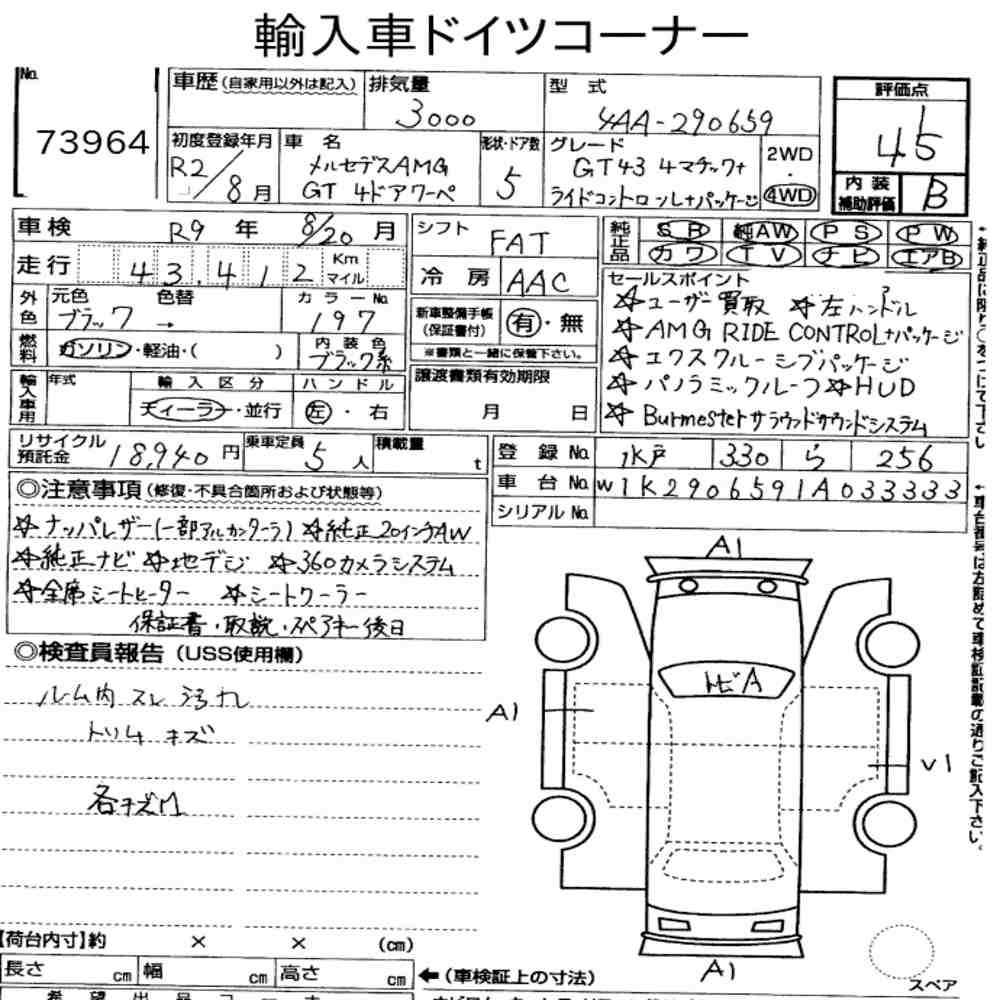 輸入車ドイツコーナー
No.
73964
車歴(自家用以外は記入)
排気量
3000
型 式
4AA-290659
評価点
4.5
内装補助評価
B
初度登録年月
R2/8月
車 名
メルセデスAMG
GT 4ドアクーペ
形状・ドア数
5
グレード
GT43 4マチック+
ライドコントロール+パッケージ
2WD
・
4WD
車検
R9 年 8/20 月
走行
43,412
Km
マイル
シフト
FAT
冷 房
AAC
純正品
SR 純AW PS PW
カワ TV ナビ エアB
外色
元色
ブラック
色替
→
カラーNo.
197
燃料
ガソリン・軽油・( )
内装色
ブラック系
新車整備手帳
(保証書付)
有・無
※書類と一緒に保管下さい。
セールスポイント
☆ユーザー買取 ☆左ハンドル
☆AMG RIDE CONTROL+パッケージ
☆エクスクルーシブパッケージ
☆パノラミックルーフ☆HUD
☆Burmesterサラウンドサウンドシステム
輸入車用
年式
輸入区分
ディーラー・並行
ハンドル
左・右
譲渡書類有効期限
月 日
リサイクル預託金
18,940円
乗車定員
5人
積載量
t
登録No.
水戸 330 ら 256
車台No.
W1K2906591A033333
シリアルNo.
◎注意事項(修復・不具合箇所および状態等)
☆ナッパレザー(一部アルカンターラ) ☆純正20インチAW
☆純正ナビ ☆地デジ ☆360カメラシステム
☆全席シートヒーター ☆シートクーラー
保証書・取説・スペアキー後日
◎検査員報告(USS使用欄)
ルーム内 スレ 汚れ
トリム キズ
各キズ
A1
トビA
A1
V1
A1
スペア
【荷台内寸】約 × × (cm)
長さ cm 幅 cm 高さ cm
←(車検証上の寸法)
希望出品コーナー